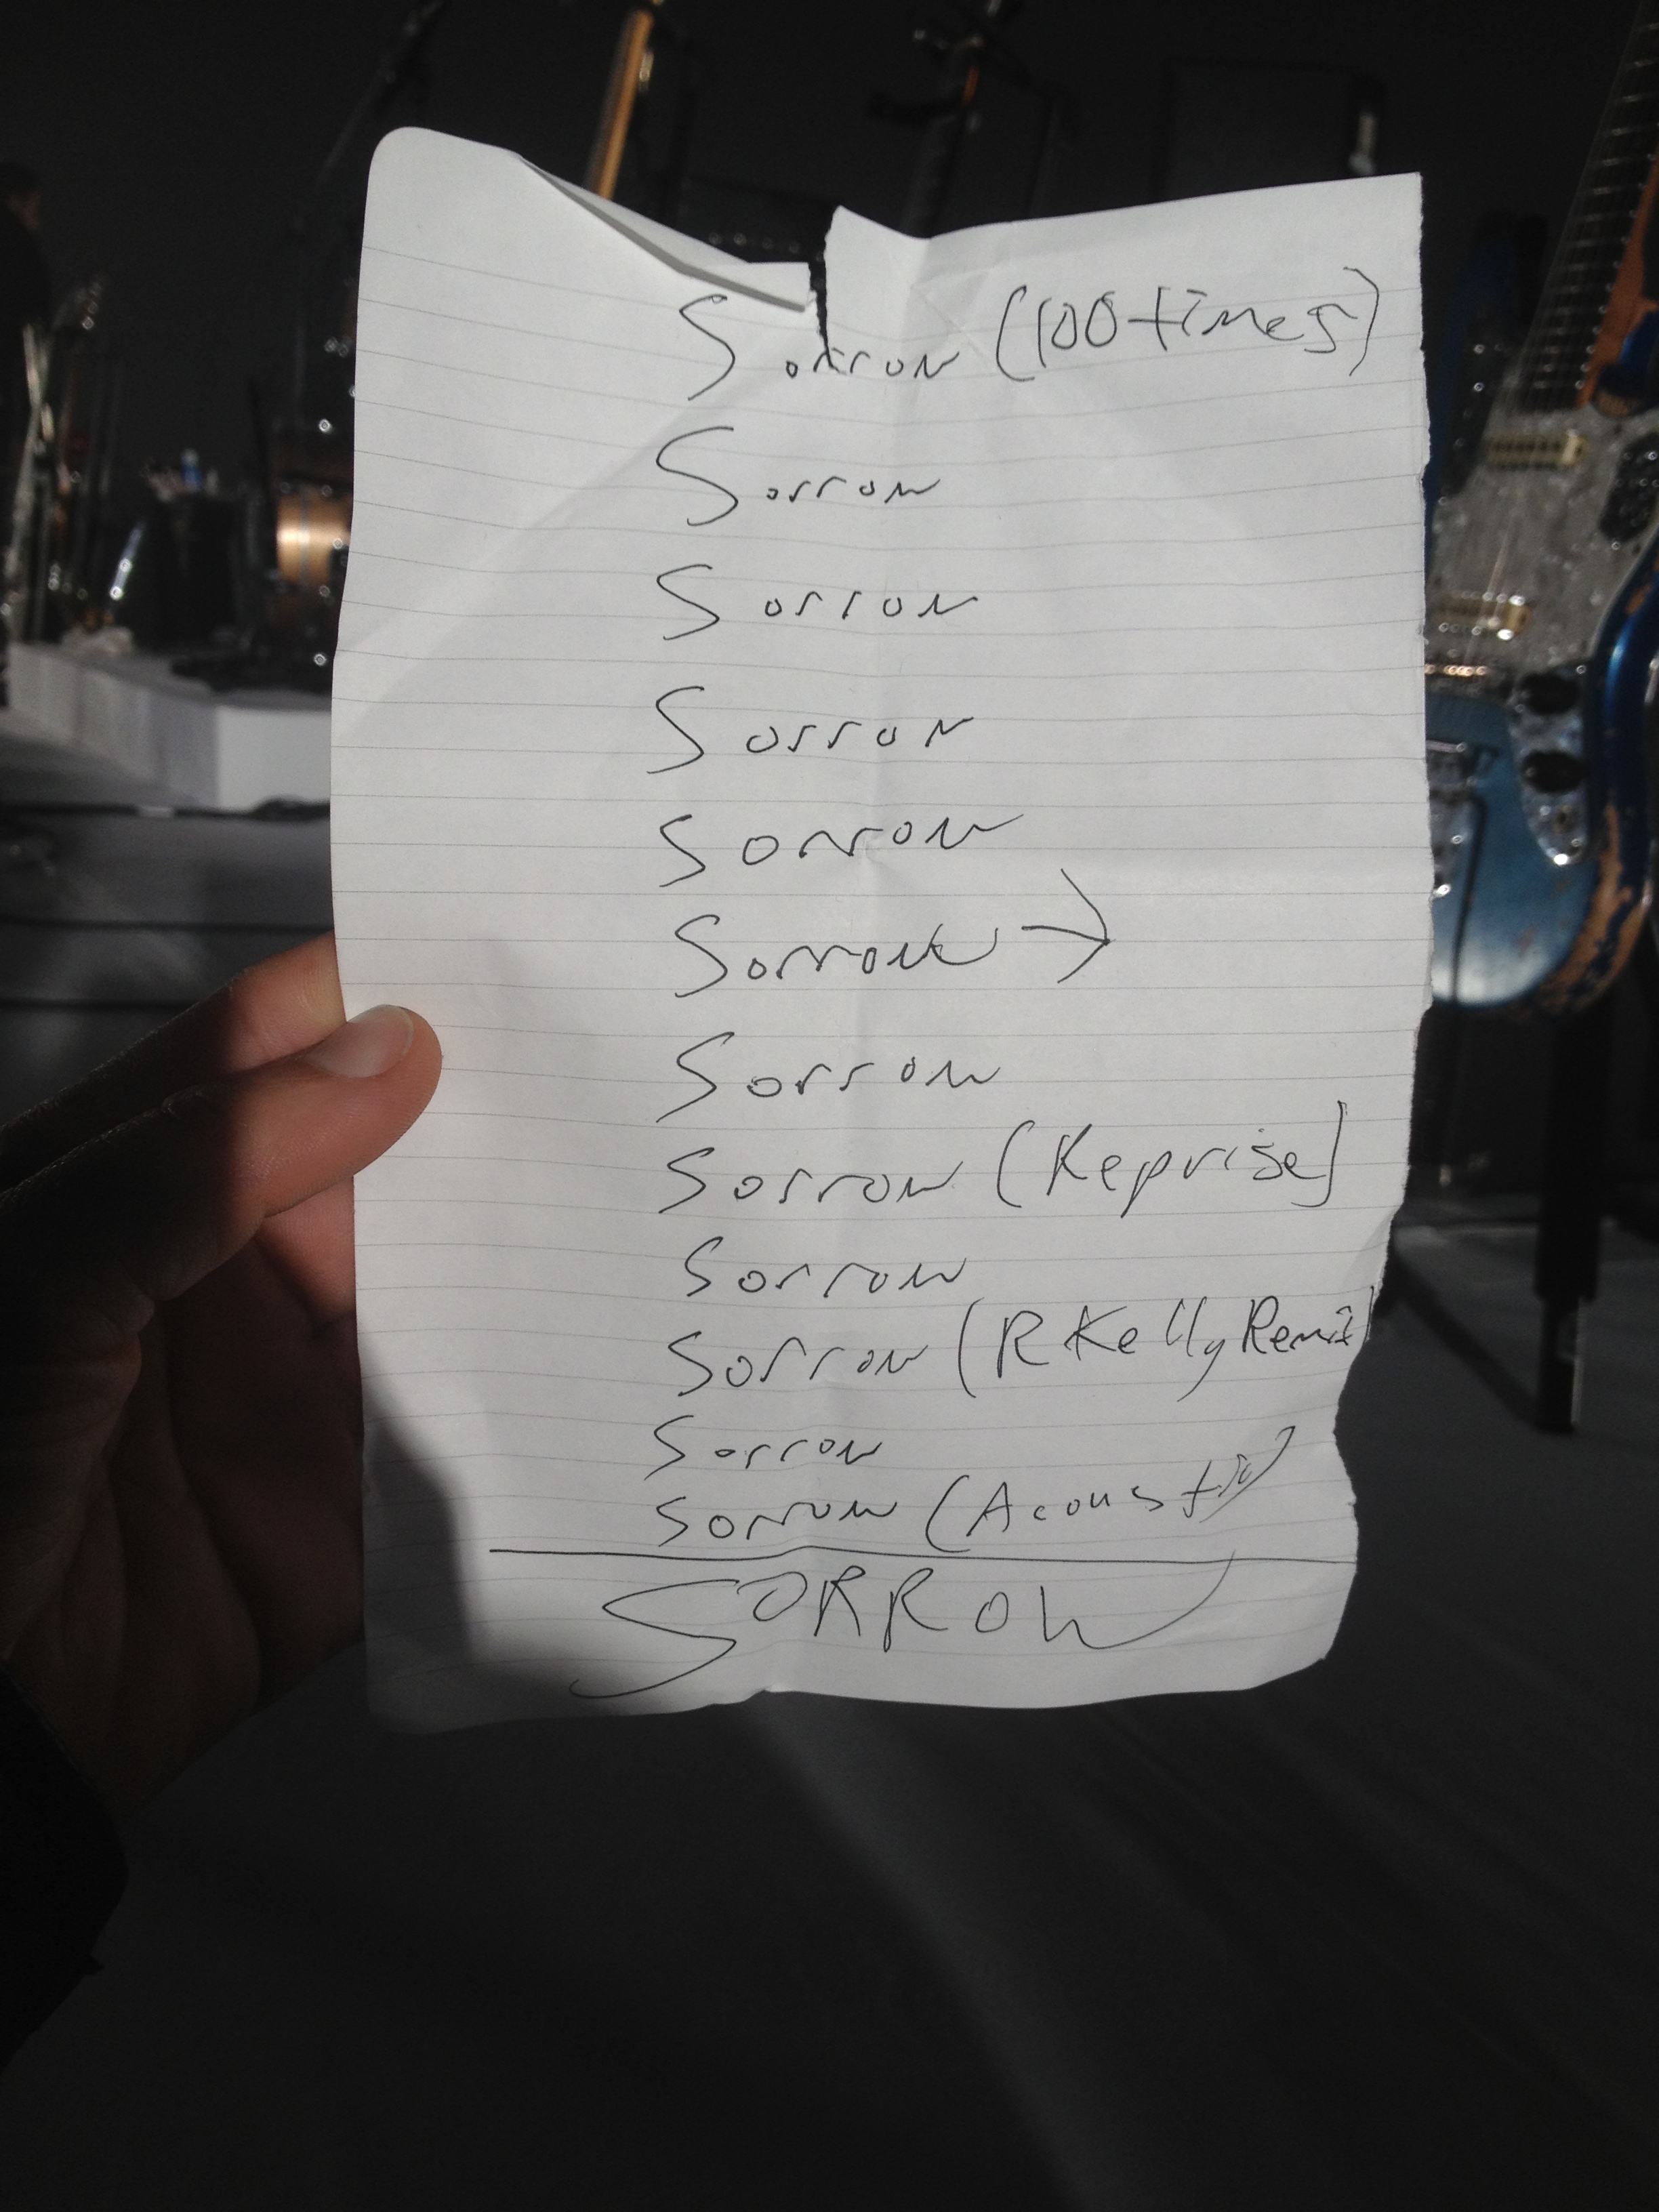 Sorrow (100 times)
Sorrow
Sorrow
Sorrow
Sorrow
Sorrow →
Sorrow
Sorrow (Reprise)
Sorrow
Sorrow (R Kelly Remix)
Sorrow
Sorrow (Acoustic)
SORROW